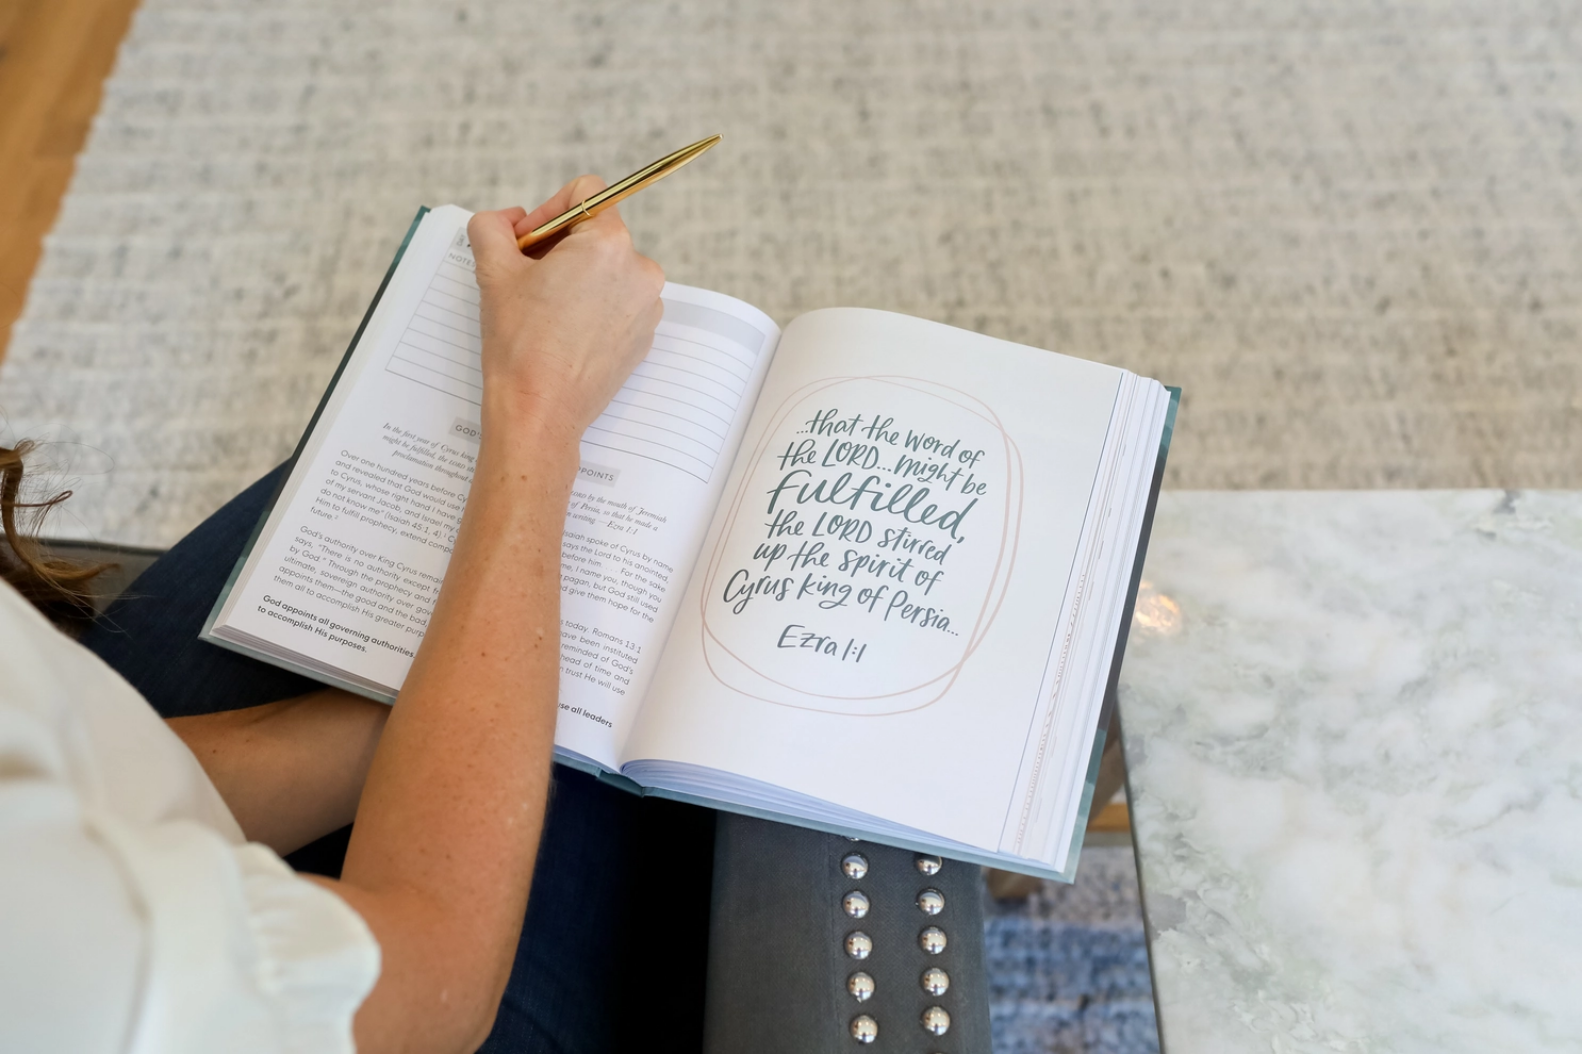 NOTES
GOD'S
POINTS
In the first year of Cyrus king
might be fulfilled, the LORD
proclamation throughout
by the mouth of Jeremiah
of Persia, so that he made a
writing. —Ezra 1:1
Over one hundred years before Cy
and revealed that God would use
to Cyrus, whose right hand I have
of my servant Jacob, and Israel my
do not know me" (Isaiah 45:1, 4).
Him to fulfill prophecy, extend comp
future.
Isaiah spoke of Cyrus by name
says the Lord to his anointed,
before him . . . For the sake
me, I name you, though you
pagan, but God still used
d give them hope for the
God's authority over King Cyrus remain
says, "There is no authority except f
by God." Through the prophecy and
ultimate, sovereign authority over gov
appoints them—the good and the bad,
them all to accomplish His greater purp
s today. Romans 13:1
ave been instituted
reminded of God's
head of time and
trust He will use
God appoints all governing authorities
to accomplish His purposes.
use all leaders
...that the word of
the LORD...might be
fulfilled,
the LORD stirred
up the spirit of
Cyrus king of Persia...
Ezra 1:1